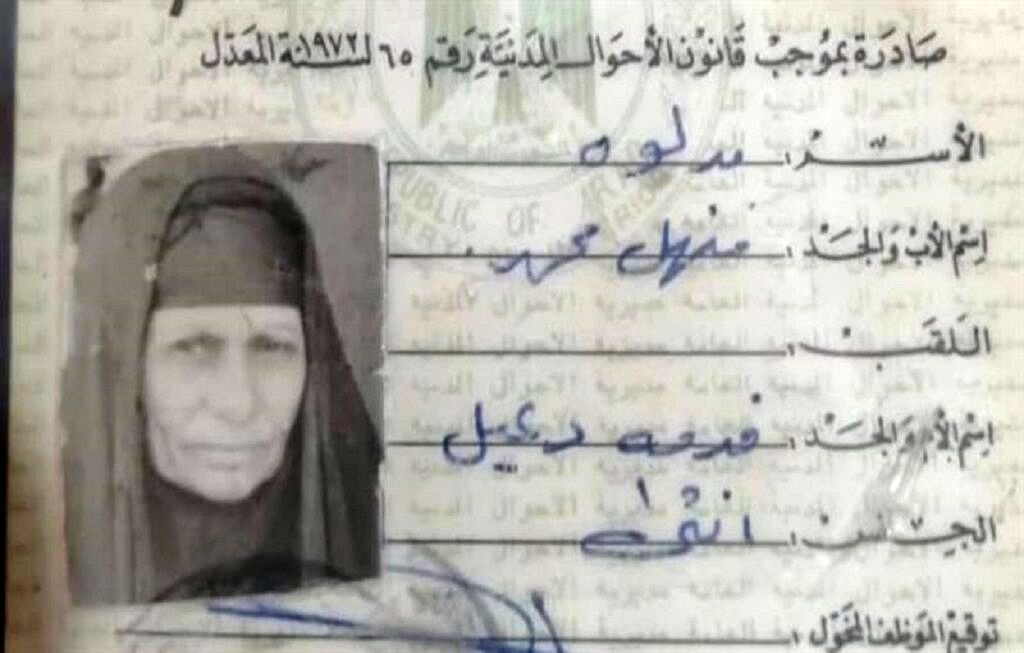 صادرة بموجب قانون الأحوال المدنية رقم ٦٥ لسنة ١٩٧٢ المعدل
الأسم : مدلوه
REPUBLIC OF IRAQ
إسم الأب والجد : منهل محمد
اللقب :
إسم الأم والجد : فرحه دعيبل
الجنس : انثى
توقيع الموظف المخول :